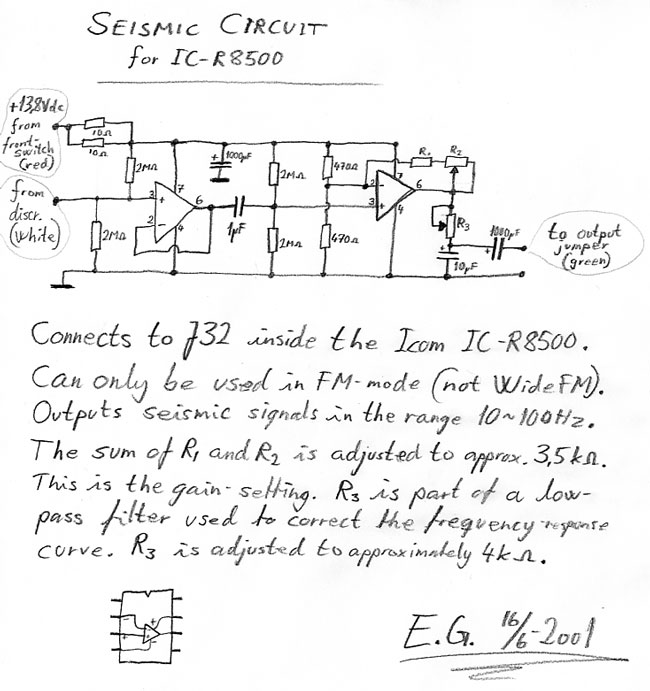 SEISMIC CIRCUIT
for IC-R8500
+13,8Vdc
from
front-
switch
(red)
10Ω
10Ω
2MΩ
1000µF
2MΩ
470Ω
R1
R2
from
discr.
(white)
2MΩ
3
2
7
6
4
1µF
2MΩ
470Ω
2
3
7
6
4
R3
10µF
1000µF
to output
jumper
(green)
Connects to J32 inside the Icom IC-R8500.
Can only be used in FM-mode (not Wide FM).
Outputs seismic signals in the range 10~100Hz.
The sum of R1 and R2 is adjusted to approx. 3,5kΩ.
This is the gain-setting. R3 is part of a low-
pass filter used to correct the frequency response
curve. R3 is adjusted to approximately 4kΩ.
E.G. 16/6-2001